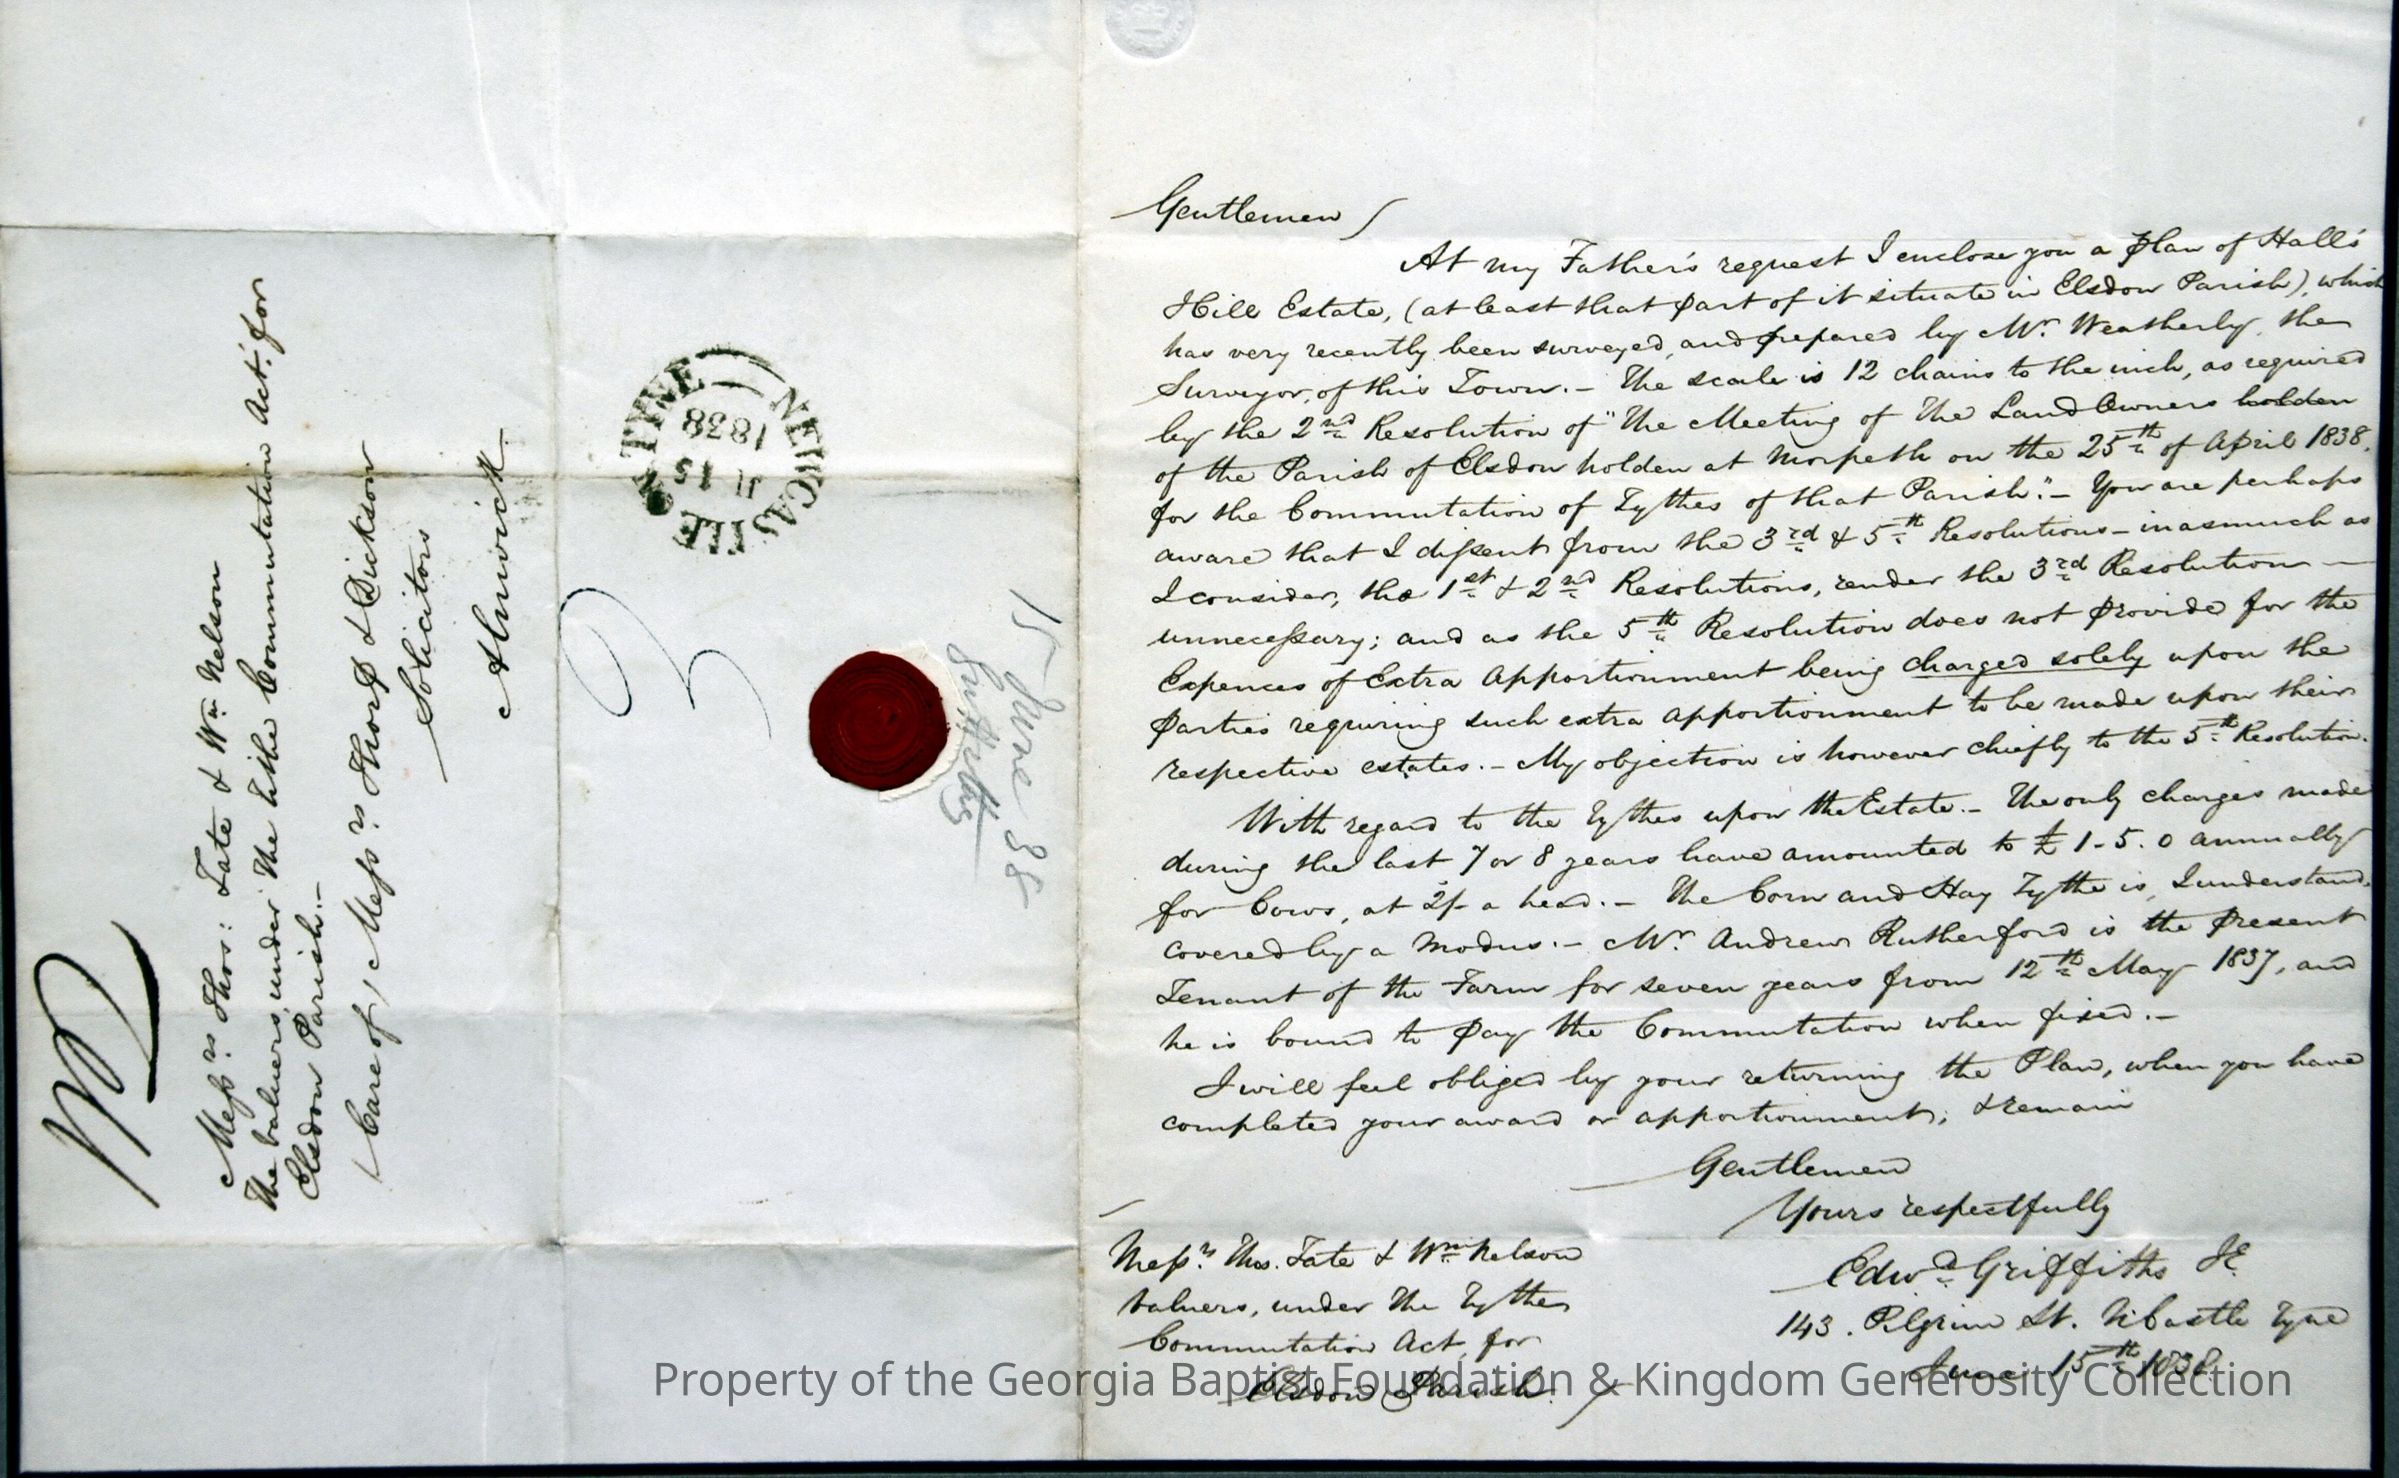 Messrs. Thos: Tate & Wm Nelson
The valuers under The tithe Commutation Act. for
Elsdon Parish.—
(Care of, Messrs. Thorp & Dickson
Solicitors
Alnwick.
NEWCASTLE ON TYNE
JU 15
1838
3
15 June 38
Griffiths
Gentlemen
At my Father's request I enclose you a plan of Hall's
Hill Estate, (at least that part of it situate in Elsdon Parish), which
has very recently been surveyed, and prepared by Mr. Weatherly, the
Surveyor, of this Town.— The scale is 12 chains to the inch, as required
by the 2nd Resolution of "The Meeting of The Land Owners holden
of the Parish of Elsdon holden at Morpeth on the 25th of April 1838,
for the Commutation of Tythes of that Parish."— You are perhaps
aware that I dissent from the 3rd & 5th Resolutions— inasmuch as
I consider, the 1st & 2nd Resolutions, render the 3rd Resolution —
unnecessary; and as the 5th Resolution does not provide for the
Expences of Extra Apportionment being charged solely upon the
parties requiring such extra apportionment to be made upon their
respective estates.— My objection is however chiefly to the 5th Resolution.
With regard to the Tythes upon the Estate.— The only charges made
during the last 7 or 8 years have amounted to £1-5.0 annually
for Cows, at 2/- a head.— The Corn and Hay Tythe is, I understand,
covered by a Modus.— Mr. Andrew Rutherford is the present
Tenant of the Farm for seven years from 12th May 1837, and
he is bound to pay the Commutation when fixed.—
I will feel obliged by your returning the Plan, when you have
completed your award or apportionment; & remain
Gentlemen
Yours respectfully
Edwd. Griffiths Jr.
143. Pilgrim St. NCastle Tyne
June 15th 1838.
Messrs. Thos. Tate & Wm Nelson
Valuers, under The Tythe
Commutation Act, for
Elsdon Parish.
Property of the Georgia Baptist Foundation & Kingdom Generosity Collection